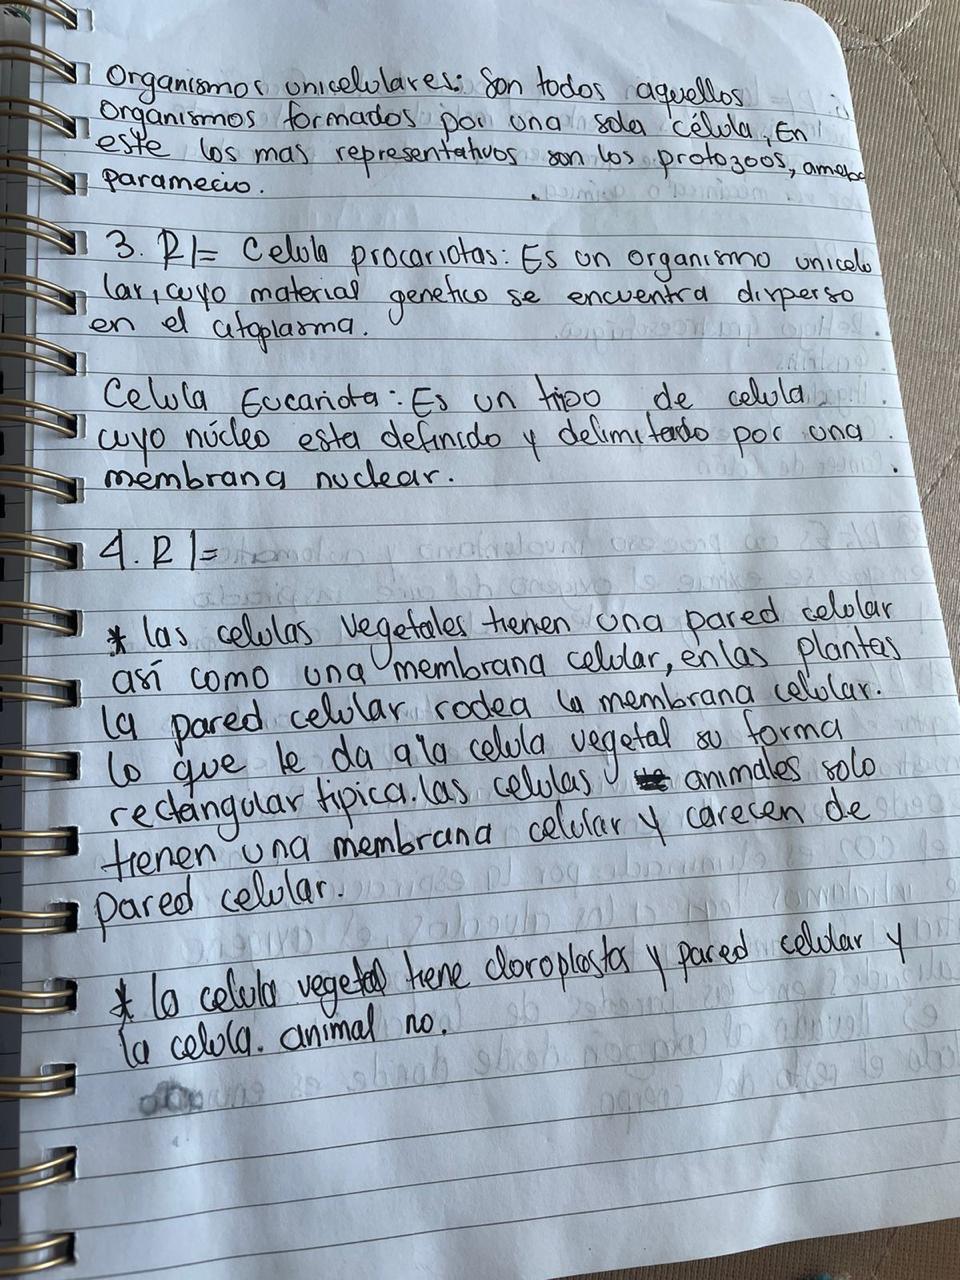 Organismos unicelulares: Son todos aquellos
organismos formados por una sola célula, En
este los mas representativos son los protozoos, ameba
paramecio.
3. R/= Celula procariotas: Es un organismo unicelu
lar, cuyo material genetico se encuentra disperso
en el citoplasma.
Celula Eucariota: Es un tipo de celula
cuyo núcleo esta definido y delimitado por una
membrana nuclear.
4. R/=
* las celulas vegetales tienen una pared celular
así como una membrana celular, en las plantas
la pared celular rodea la membrana celular.
lo que le da a la celula vegetal su forma
rectángular tipica. las celulas animales solo
tienen una membrana celular y carecen de
pared celular.
* la celula vegetal tiene cloroplastos y pared celular y
la celula. animal no.